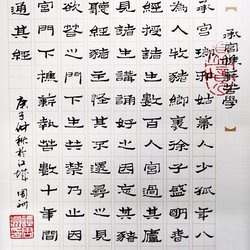 承宮樵薪苦學
承宮瑯琊姑幕人少孤年八
歲為人牧豬鄉里徐子盛明春
經授諸生數百人宮過其廬
見諸生講誦好之因忘其豬
聽經豬主怪不還尋之見
欲笞之門下生共禁止因
宮門下樵薪執苦數十年間
通其經
庚子仲秋於江城周訓